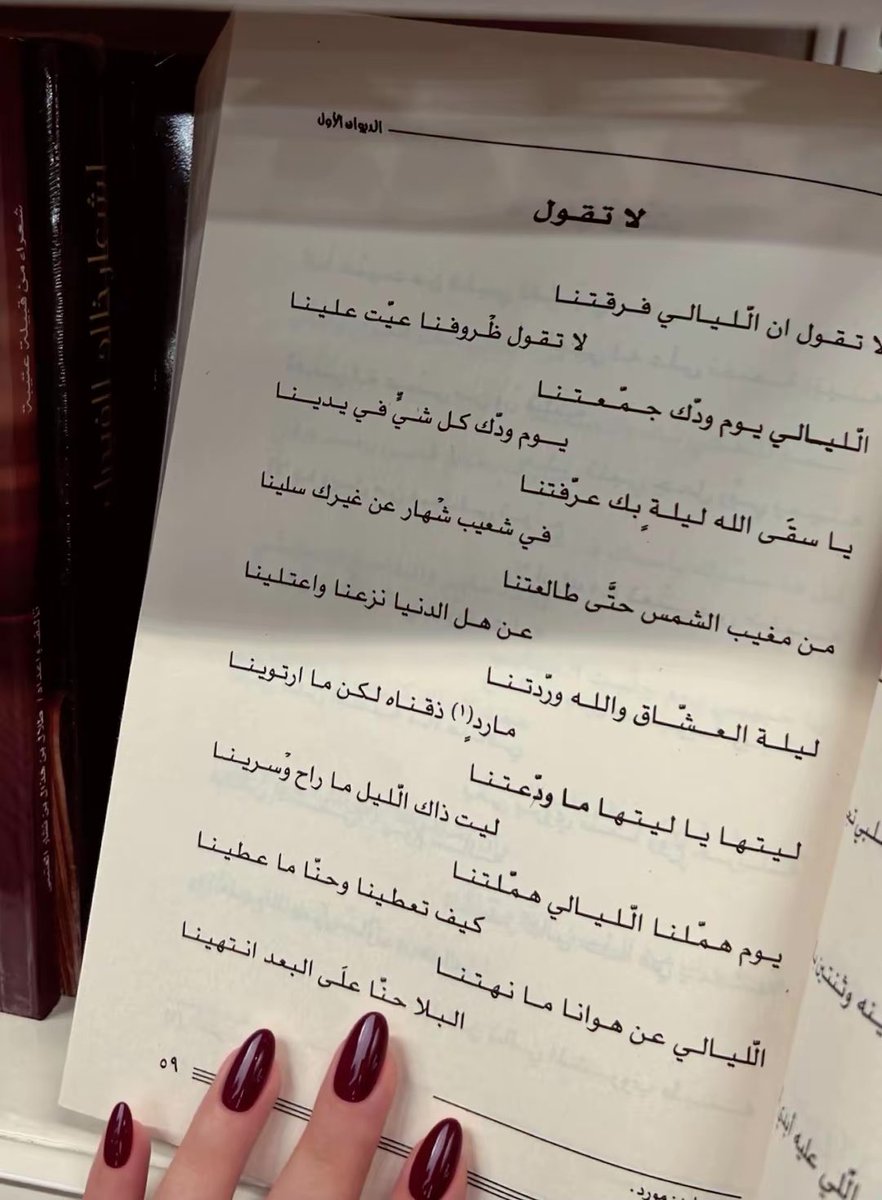 الديوان الأول
لا تقول
لا تقول ان الّليالي فرقتنا
لا تقول ظْروفنا عيّت علينا
الّليالي يوم ودّك جمّعتنا
يوم ودّك كل شيٍّ في يدينا
يا سقَى الله ليلةٍ بك عرّفتنا
في شعيب شْهار عن غيرك سلينا
من مغيب الشمس حتَّى طالعتنا
عن هل الدنيا نزعنا واعتلينا
ليلة العشّاق والله ورّدتنا
ماردٍ(١) ذقناه لكن ما ارتوينا
ليتها يا ليتها ما ودّعتنا
ليت ذاك الّليل ما راح وْسرينا
يوم همّلنا الّليالي همّلتنا
كيف تعطينا وحنّا ما عطينا
الّليالي عن هوانا ما نهتنا
البلا حنّا علَى البعد انتهينا
٥٩
مورد.
شعراء من قبيلة عتيبة
اشعار خالد الفيصل
الّلي عليه